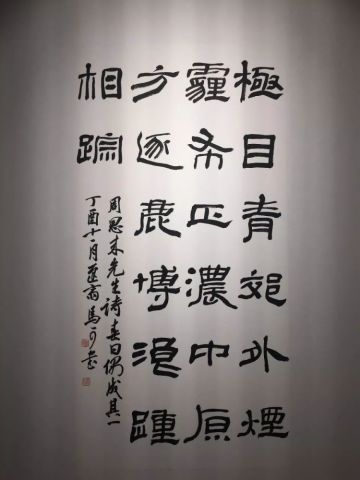 極目青郊外煙
霾布正濃中原
方逐鹿博浪踵
相踪
周恩来先生詩春日偶成其一
丁酉十月翁馬